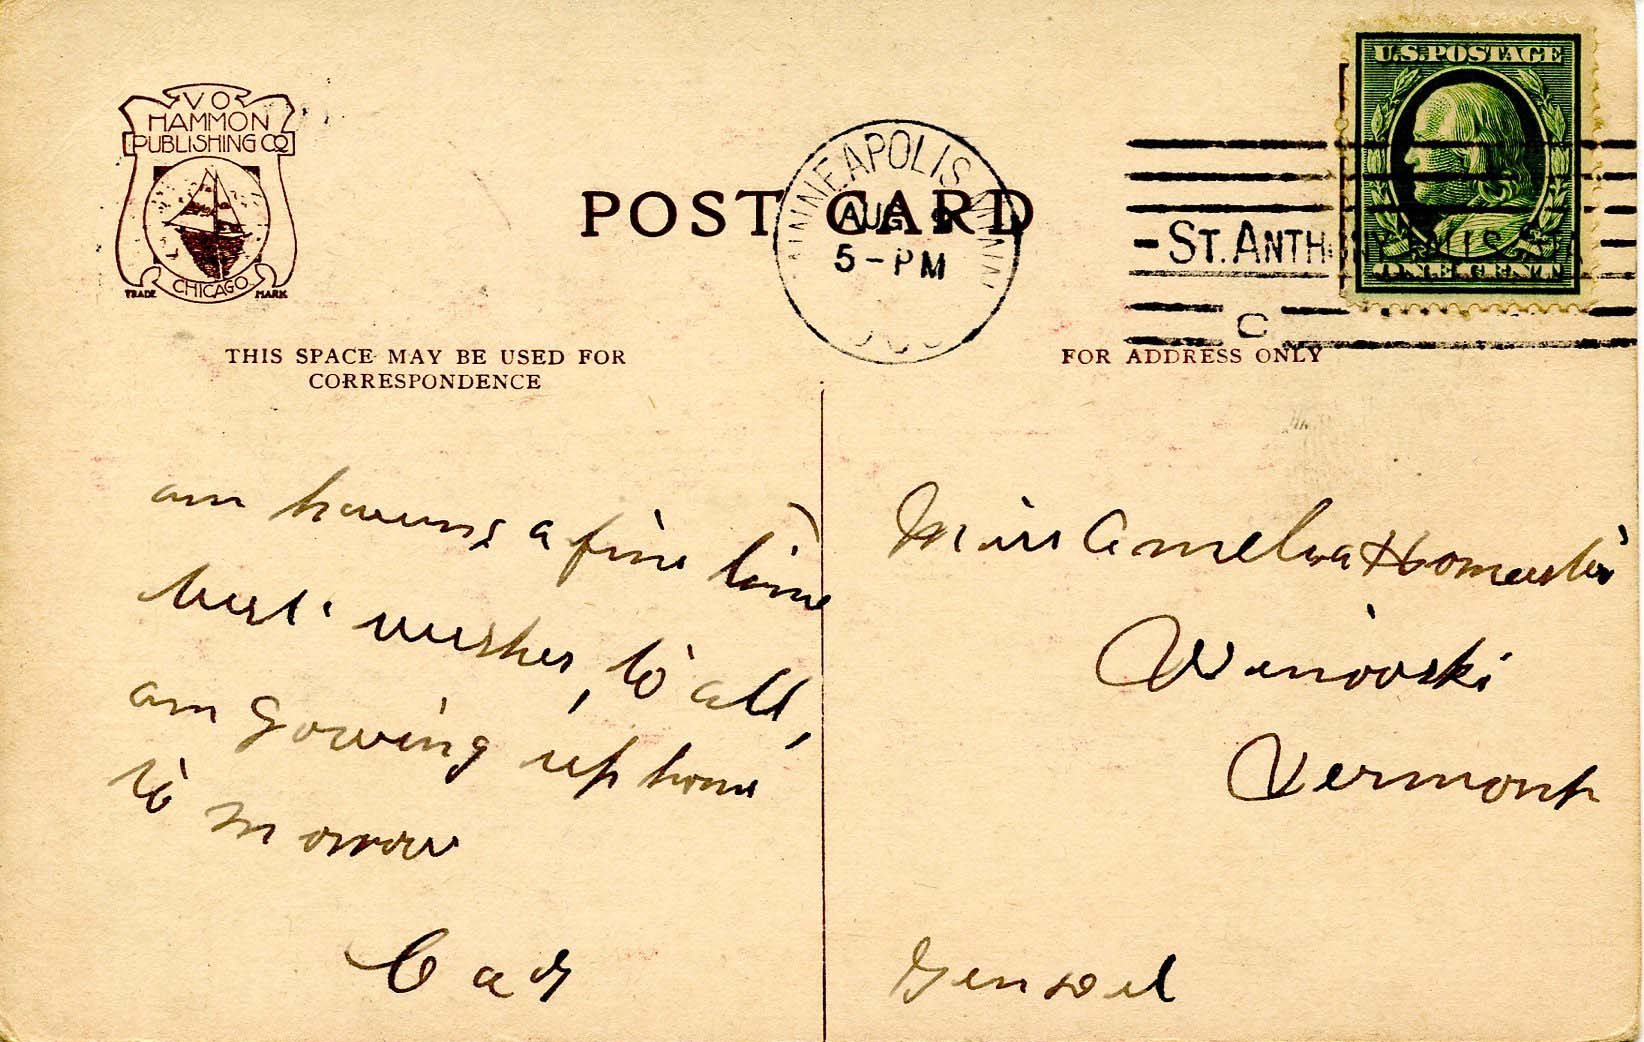 V O
HAMMON
PUBLISHING CO
CHICAGO
TRADE MARK
POST CARD
MINNEAPOLIS MINN
AUG 9
5-PM
U.S. POSTAGE
ONE CENT
ST. ANTHONY FALLS STA
C
THIS SPACE MAY BE USED FOR
CORRESPONDENCE
FOR ADDRESS ONLY
am having a fine time
best wishes, to all,
am gowing up home
to morrow
Miss Amelia
Winooski
Vermont